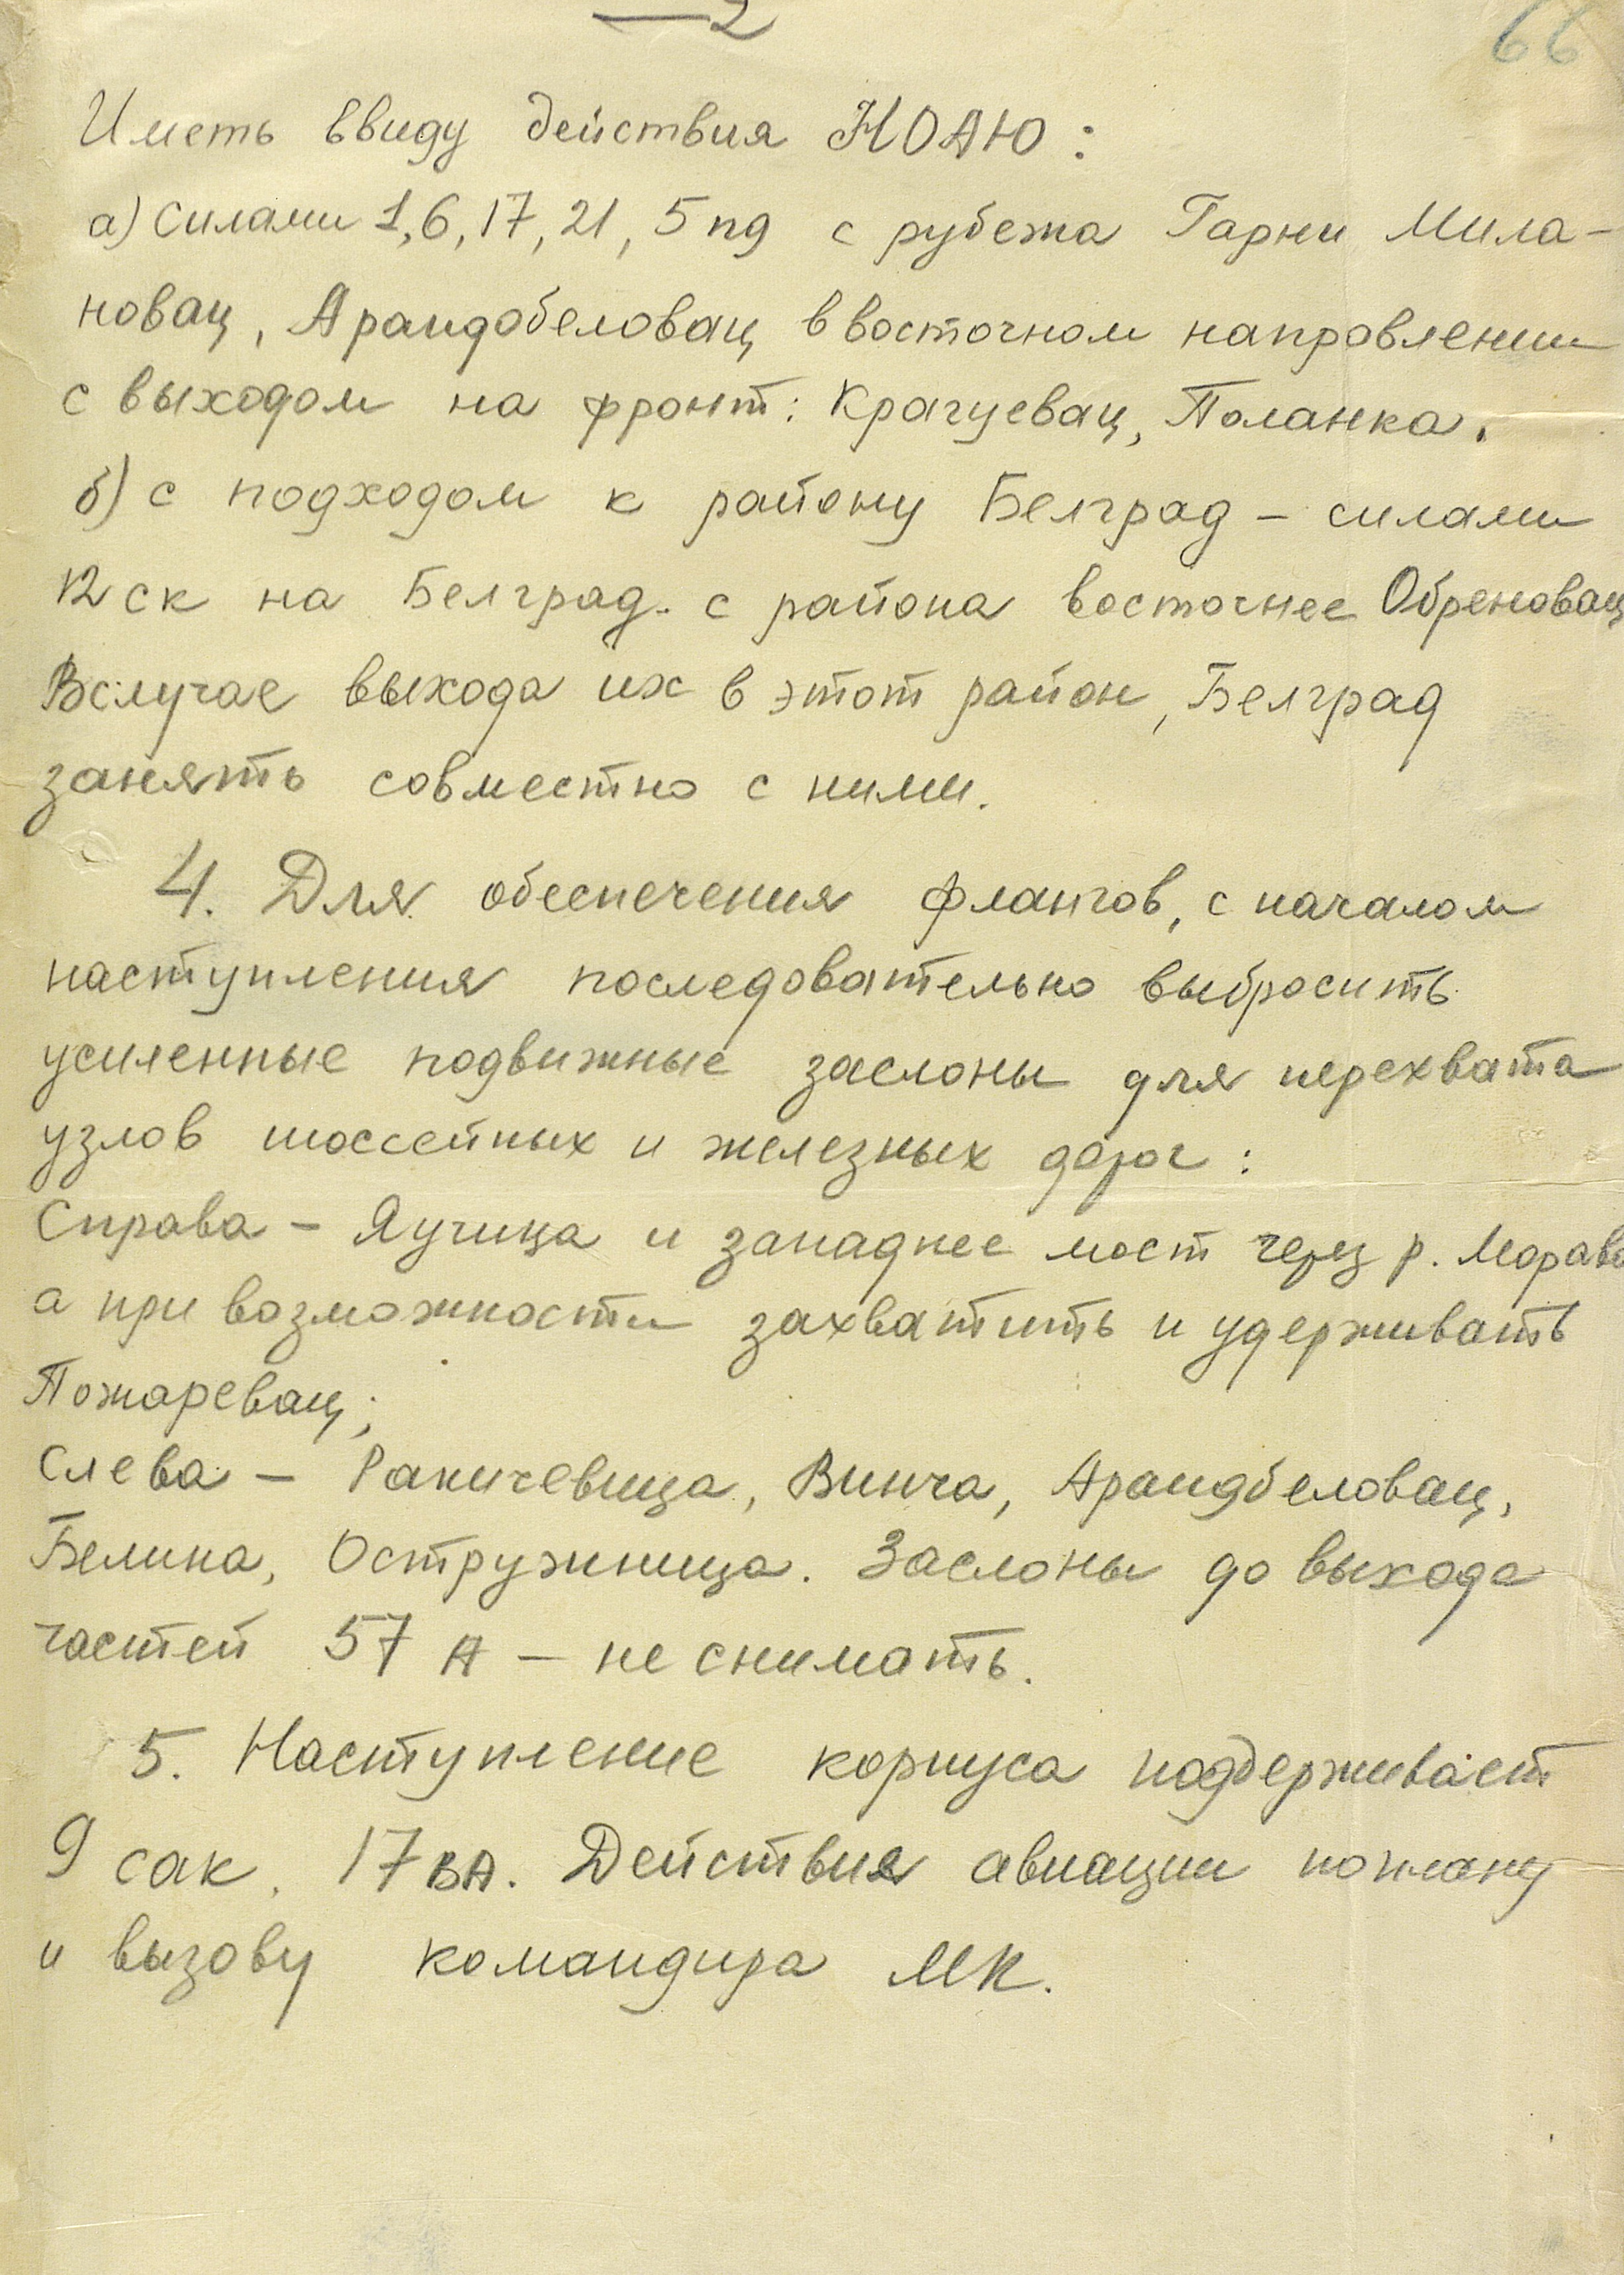 — 2
66
Иметь ввиду действия НОАЮ:
а) Силами 1, 6, 17, 21, 5 пд с рубежа Гарни Мила-
новац, Арандобеловац в восточном направлении
с выходом на фронт: Крагуевац, Поланка.
б) с подходом к району Белград – силами
12 ск на Белград с района восточнее Обреновац
В случае выхода их в этот район, Белград
занять совместно с ними.
4. Для обеспечения флангов, с началом
наступления последовательно выбросить
усиленные подвижные заслоны для перехвата
узлов шоссейных и железных дорог:
Справа – Лучица и западнее мост через р. Морава
а при возможности захватить и удерживать
Пожаревац;
Слева – Раничевица, Винча, Арандбеловац,
Белина, Остружница. Заслоны до выхода
частей 57 А – не снимать.
5. Наступление корпуса поддерживает
9 сак, 17 ВА. Действия авиации по плану
и вызову командира МК.